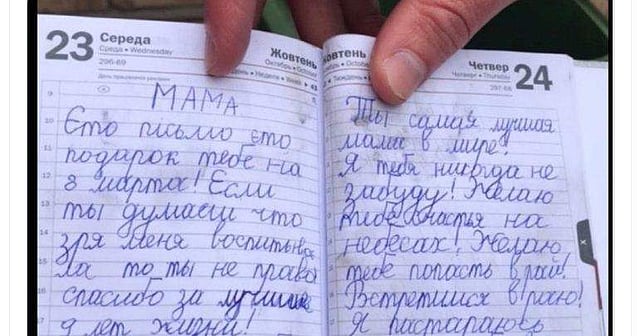 23 Середа
Среда • Wednesday
296-69
Жовтень
Октябрь • October
Неделя • Week ▸ 43
МАМА
9
Єто письмо єто
10
подарок тебе на
11
8 марта! Если
12
ты думаеш что
13
зря меня воспитыва
14
ла то ты не права
15
спасибо за лучшие
16
9 лет жизни!
Жовтень
Четвер 24
Четверг • Thursday
297-68
Ты самая лучшая
мама в мире!
Я тебя никогда не
забуду! Желаю
тебе счастья на
небесах! Желаю
тебе попасть в рай!
Встретимся в раю!
Я пастараюсь